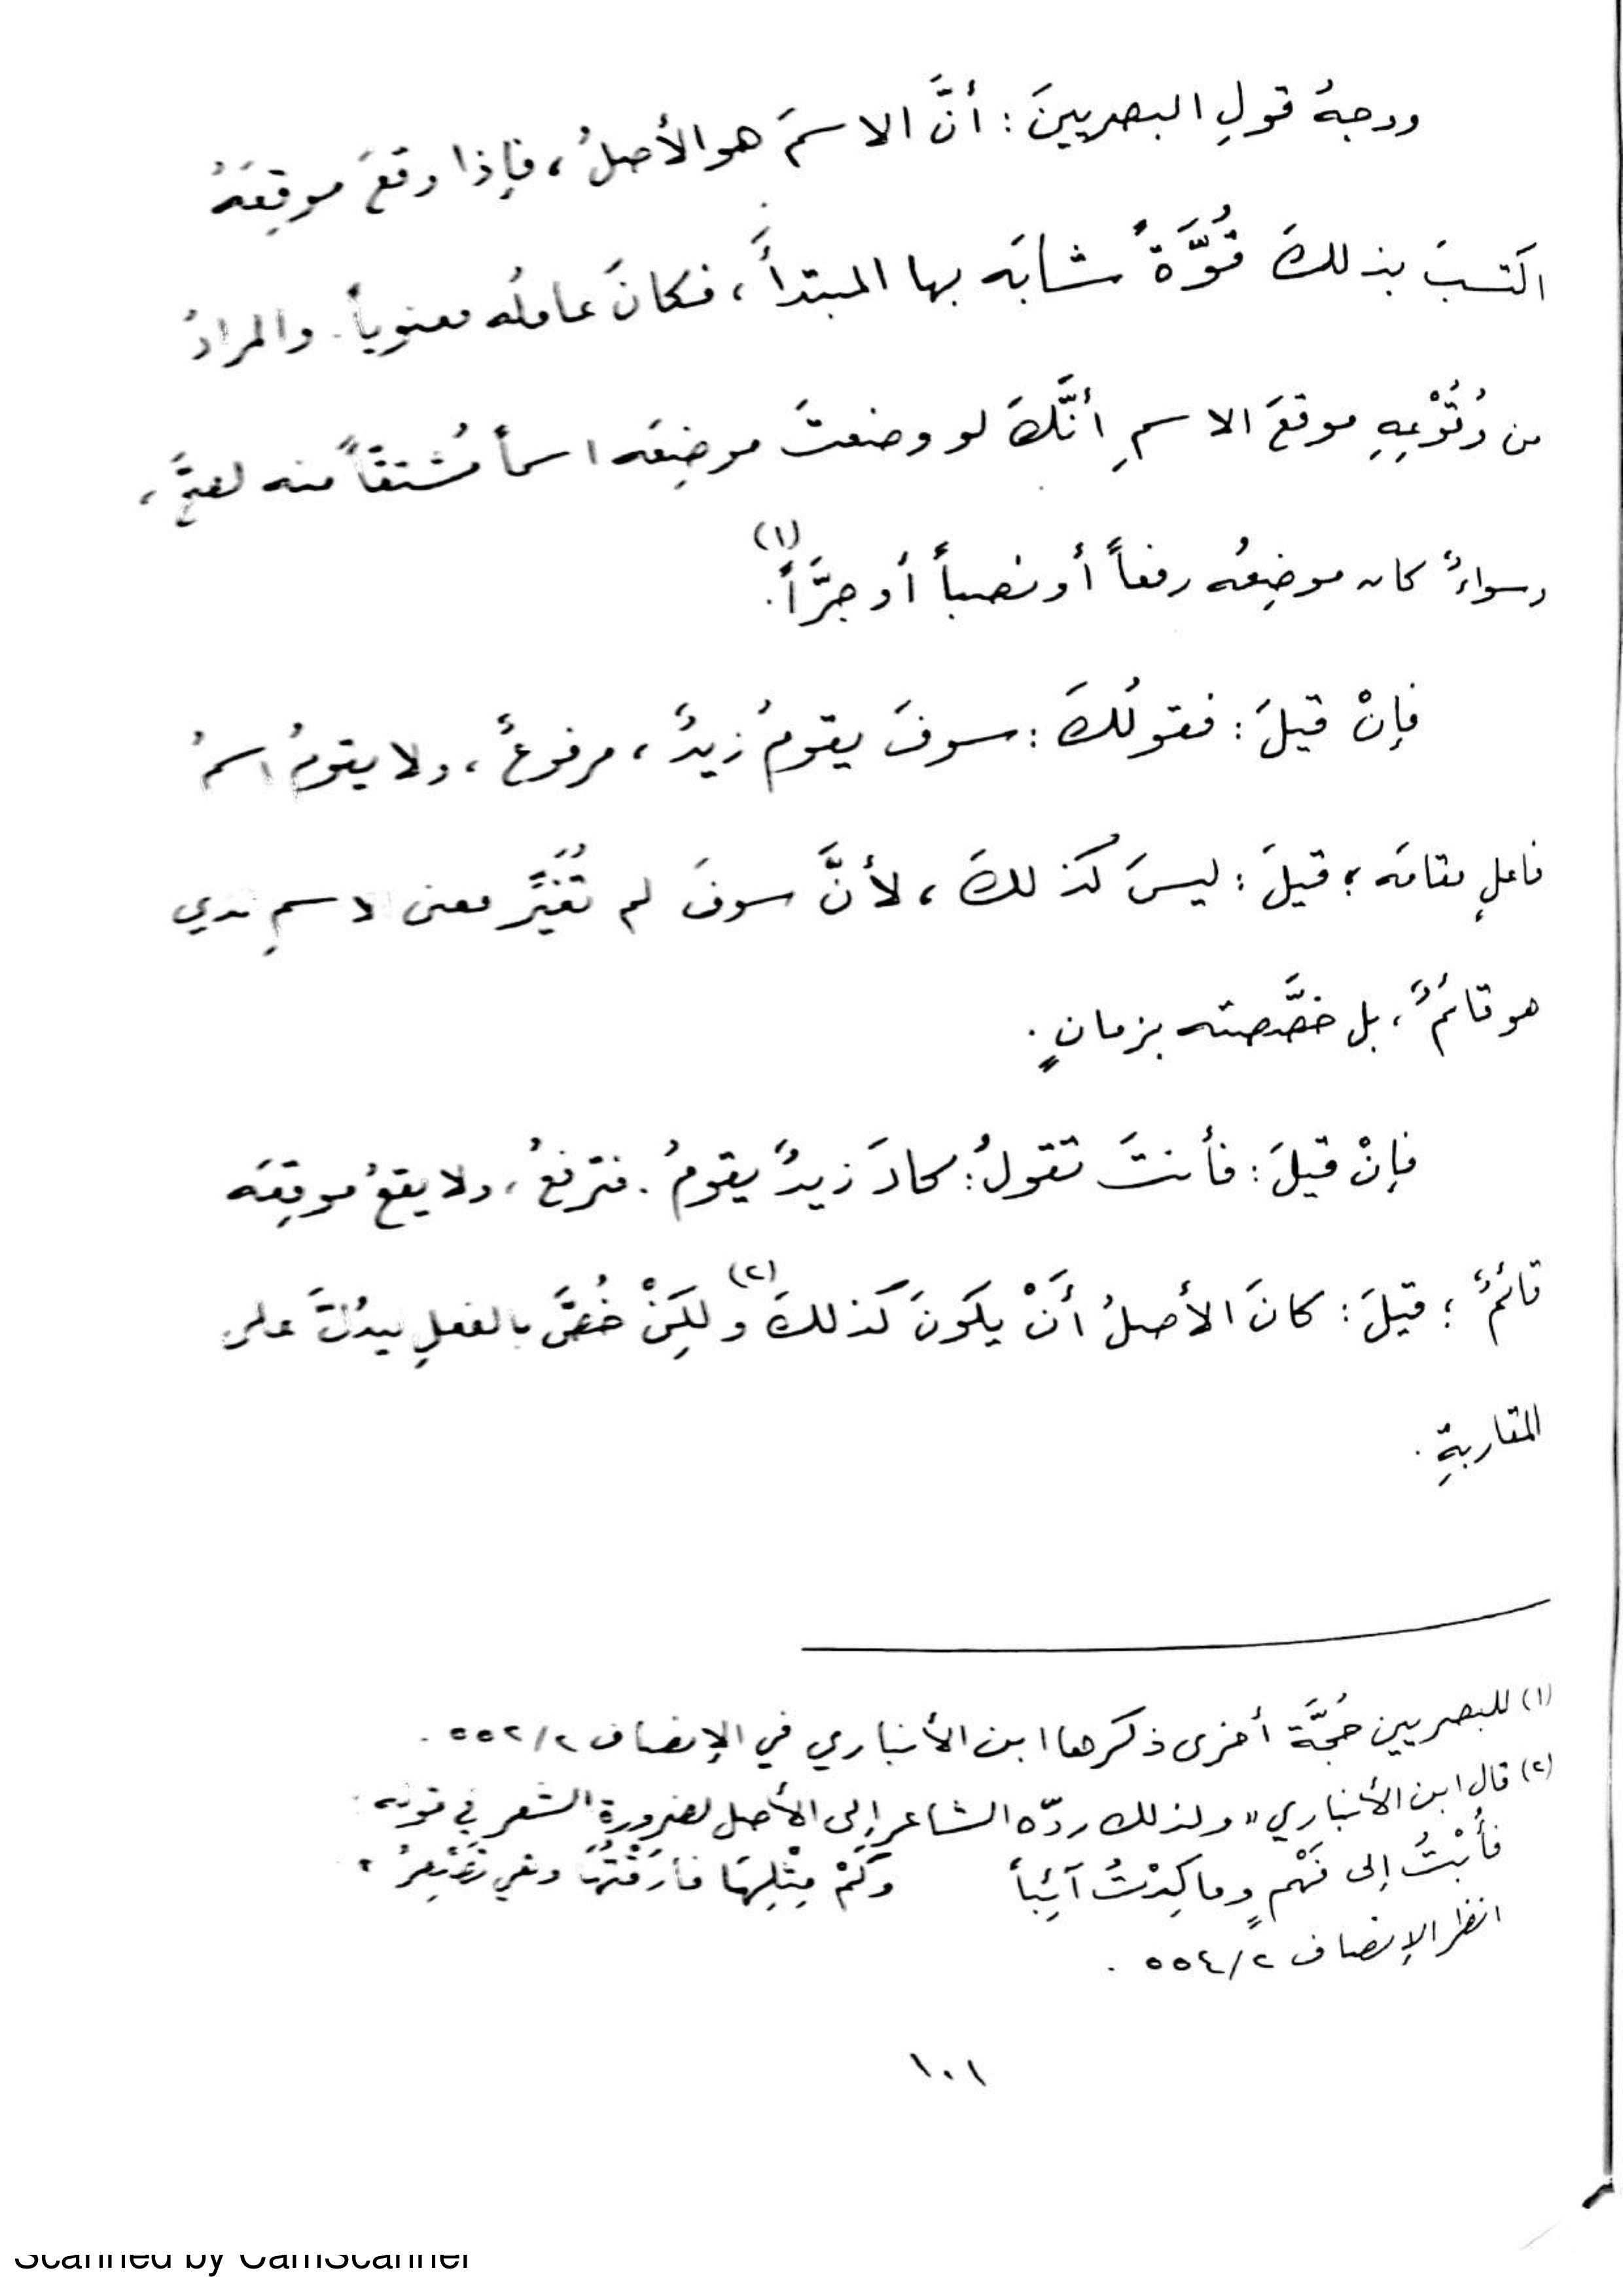 ووجهُ قولِ البصريينَ : أنَّ الاسمَ هو الأصلُ ، فإذا وقعَ موقِعَهُ
اكتسبَ بذلكَ قُوَّةً شابَه بها المبتدأَ ، فكانَ عاملُه معنوياً . والمرادُ
من وُقُوْعِهِ موقعَ الاسمِ أنَّكَ لو وضعتَ موضِعَه اسماً مُشتقاً منه لصحَّ ،
وسواءٌ كان موضِعُه رفعاً أو نصباً أو جرَّاً (١) .
فإنْ قيلَ : فقولُكَ : سوفَ يقومُ زيدٌ ، مرفوعٌ ، ولا يقومُ اسمُ
فاعلٍ مقامَه ؛ قيلَ : ليسَ كذلكَ ، لأنَّ سوفَ لم تُغَيِّر معنى الاسمِ الذي
هو قائمٌ ، بل خصَّصته بزمانٍ .
فإنْ قيلَ : فأنتَ تقولُ : كادَ زيدٌ يقومُ . فترفعُ ، ولا يقعُ موقِعَه
قائمٌ ؛ قيلَ : كانَ الأصلُ أَنْ يكونَ كذلكَ (٢) ولكِنْ خُصَّ بالفعلِ ليدُلَّ على
المقاربةِ .
(١) للبصريين حُجَّة أخرى ذكرها ابن الأنباري في الإنصاف ٢/ ٥٥٢ .
(٢) قال ابن الأنباري " ولذلك ردّه الشاعر إلى الأصل لضرورة الشعر في قوله :
فأُبْتُ إلى فَهْمٍ وما كِدْتُ آئِباً وكَمْ مِثْلِهَا فارَقْتُهَا وهي تَصْفِرُ "
انظر الإنصاف ٢/ ٥٥٤ .
١٠١
Scanned by CamScanner